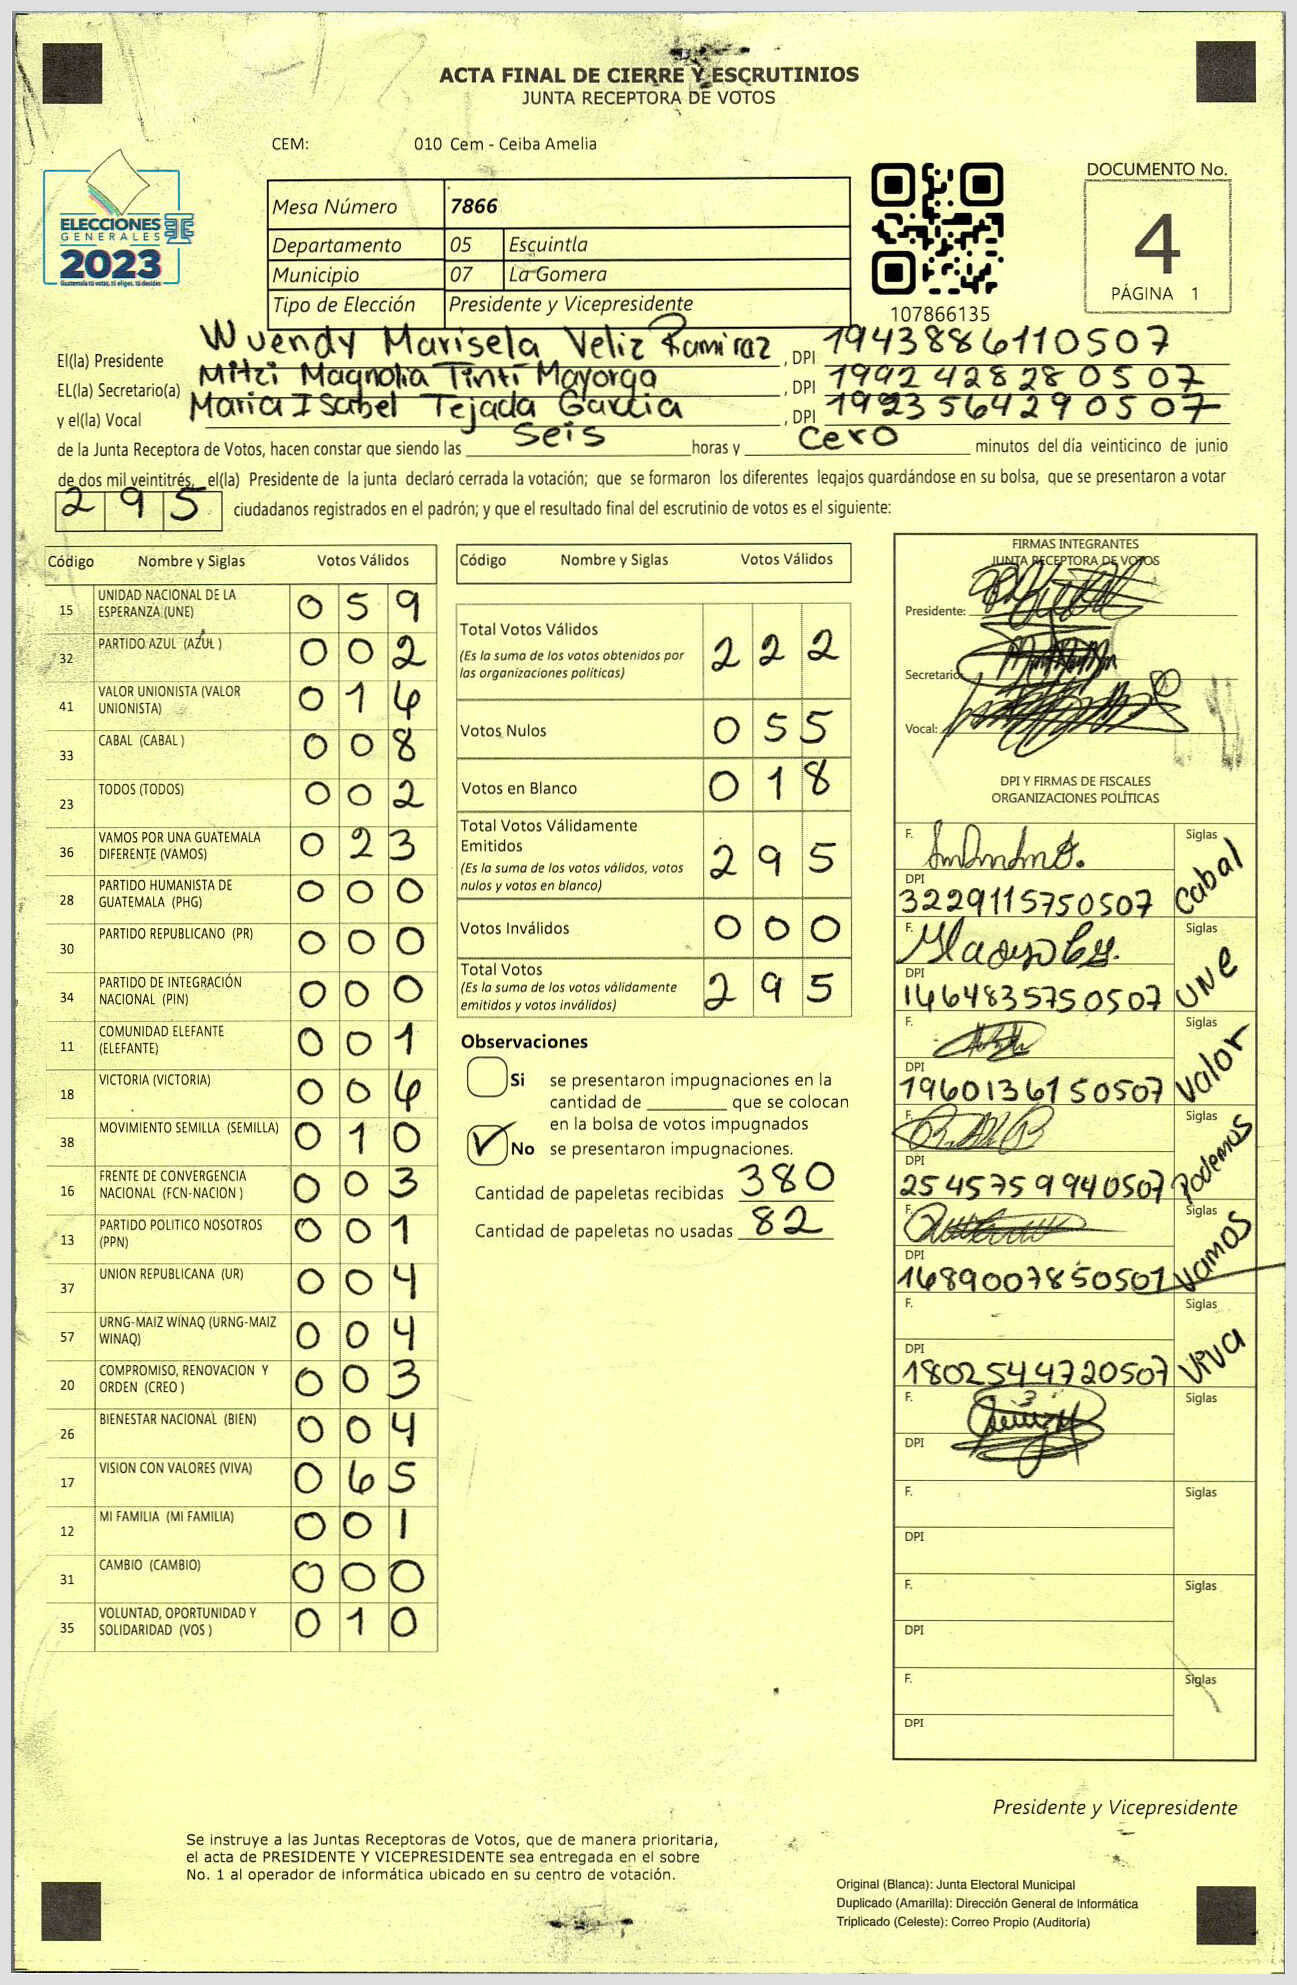 ACTA FINAL DE CIERRE Y ESCRUTINIOS
JUNTA RECEPTORA DE VOTOS
CEM: 010 Cem - Ceiba Amelia
ELECCIONES
GENERALES
2023
Guatemala tú votas, tú eliges, tú decides
Mesa Número 7866
Departamento 05 Escuintla
Municipio 07 La Gomera
Tipo de Elección Presidente y Vicepresidente
107866135
DOCUMENTO No.
4
PÁGINA 1
El(la) Presidente Wuendy Marisela Veliz Ramiraz , DPI 1943886110507
EL(la) Secretario(a) Mitzi Magnolia Tinti Mayorga , DPI 1992428280507
y el(la) Vocal Maria Isabel Tejada Garcia , DPI 1923564290507
de la Junta Receptora de Votos, hacen constar que siendo las seis horas y cero minutos del día veinticinco de junio
de dos mil veintitrés, el(la) Presidente de la junta declaró cerrada la votación; que se formaron los diferentes legajos guardándose en su bolsa, que se presentaron a votar
295 ciudadanos registrados en el padrón; y que el resultado final del escrutinio de votos es el siguiente:
Código Nombre y Siglas Votos Válidos
15 UNIDAD NACIONAL DE LA ESPERANZA (UNE) 0 5 9
32 PARTIDO AZUL (AZUL ) 0 0 2
41 VALOR UNIONISTA (VALOR UNIONISTA) 0 1 6
33 CABAL (CABAL ) 0 0 8
23 TODOS (TODOS) 0 0 2
36 VAMOS POR UNA GUATEMALA DIFERENTE (VAMOS) 0 2 3
28 PARTIDO HUMANISTA DE GUATEMALA (PHG) 0 0 0
30 PARTIDO REPUBLICANO (PR) 0 0 0
34 PARTIDO DE INTEGRACIÓN NACIONAL (PIN) 0 0 0
11 COMUNIDAD ELEFANTE (ELEFANTE) 0 0 1
18 VICTORIA (VICTORIA) 0 0 6
38 MOVIMIENTO SEMILLA (SEMILLA) 0 1 0
16 FRENTE DE CONVERGENCIA NACIONAL (FCN-NACION ) 0 0 3
13 PARTIDO POLITICO NOSOTROS (PPN) 0 0 1
37 UNION REPUBLICANA (UR) 0 0 4
57 URNG-MAIZ WINAQ (URNG-MAIZ WINAQ) 0 0 4
20 COMPROMISO, RENOVACION Y ORDEN (CREO ) 0 0 3
26 BIENESTAR NACIONAL (BIEN) 0 0 4
17 VISION CON VALORES (VIVA) 0 6 5
12 MI FAMILIA (MI FAMILIA) 0 0 1
31 CAMBIO (CAMBIO) 0 0 0
35 VOLUNTAD, OPORTUNIDAD Y SOLIDARIDAD (VOS ) 0 1 0
Código Nombre y Siglas Votos Válidos
Total Votos Válidos 2 2 2
(Es la suma de los votos obtenidos por
las organizaciones políticas)
Votos Nulos 0 5 5
Votos en Blanco 0 1 8
Total Votos Válidamente
Emitidos 2 9 5
(Es la suma de los votos válidos, votos
nulos y votos en blanco)
Votos Inválidos 0 0 0
Total Votos 2 9 5
(Es la suma de los votos válidamente
emitidos y votos inválidos)
Observaciones
Si se presentaron impugnaciones en la
cantidad de ________ que se colocan
en la bolsa de votos impugnados
No se presentaron impugnaciones.
Cantidad de papeletas recibidas 380
Cantidad de papeletas no usadas 82
FIRMAS INTEGRANTES
JUNTA RECEPTORA DE VOTOS
Presidente:
Secretario
Vocal:
DPI Y FIRMAS DE FISCALES
ORGANIZACIONES POLÍTICAS
F. Siglas
DPI 3229115750507 Cabal
F. Siglas
DPI 1464835750507 UNE
F. Siglas
DPI 1960136150507 Valor
F. Siglas
DPI 2545759940507 Podemos
F. Siglas
DPI 1689007850507 Vamos
F. Siglas
DPI 1802544720507 Viva
F. Siglas
DPI
F. Siglas
DPI
F. Siglas
DPI
F. Siglas
DPI
Presidente y Vicepresidente
Se instruye a las Juntas Receptoras de Votos, que de manera prioritaria,
el acta de PRESIDENTE Y VICEPRESIDENTE sea entregada en el sobre
No. 1 al operador de informática ubicado en su centro de votación.
Original (Blanca): Junta Electoral Municipal
Duplicado (Amarilla): Dirección General de Informática
Triplicado (Celeste): Correo Propio (Auditoría)